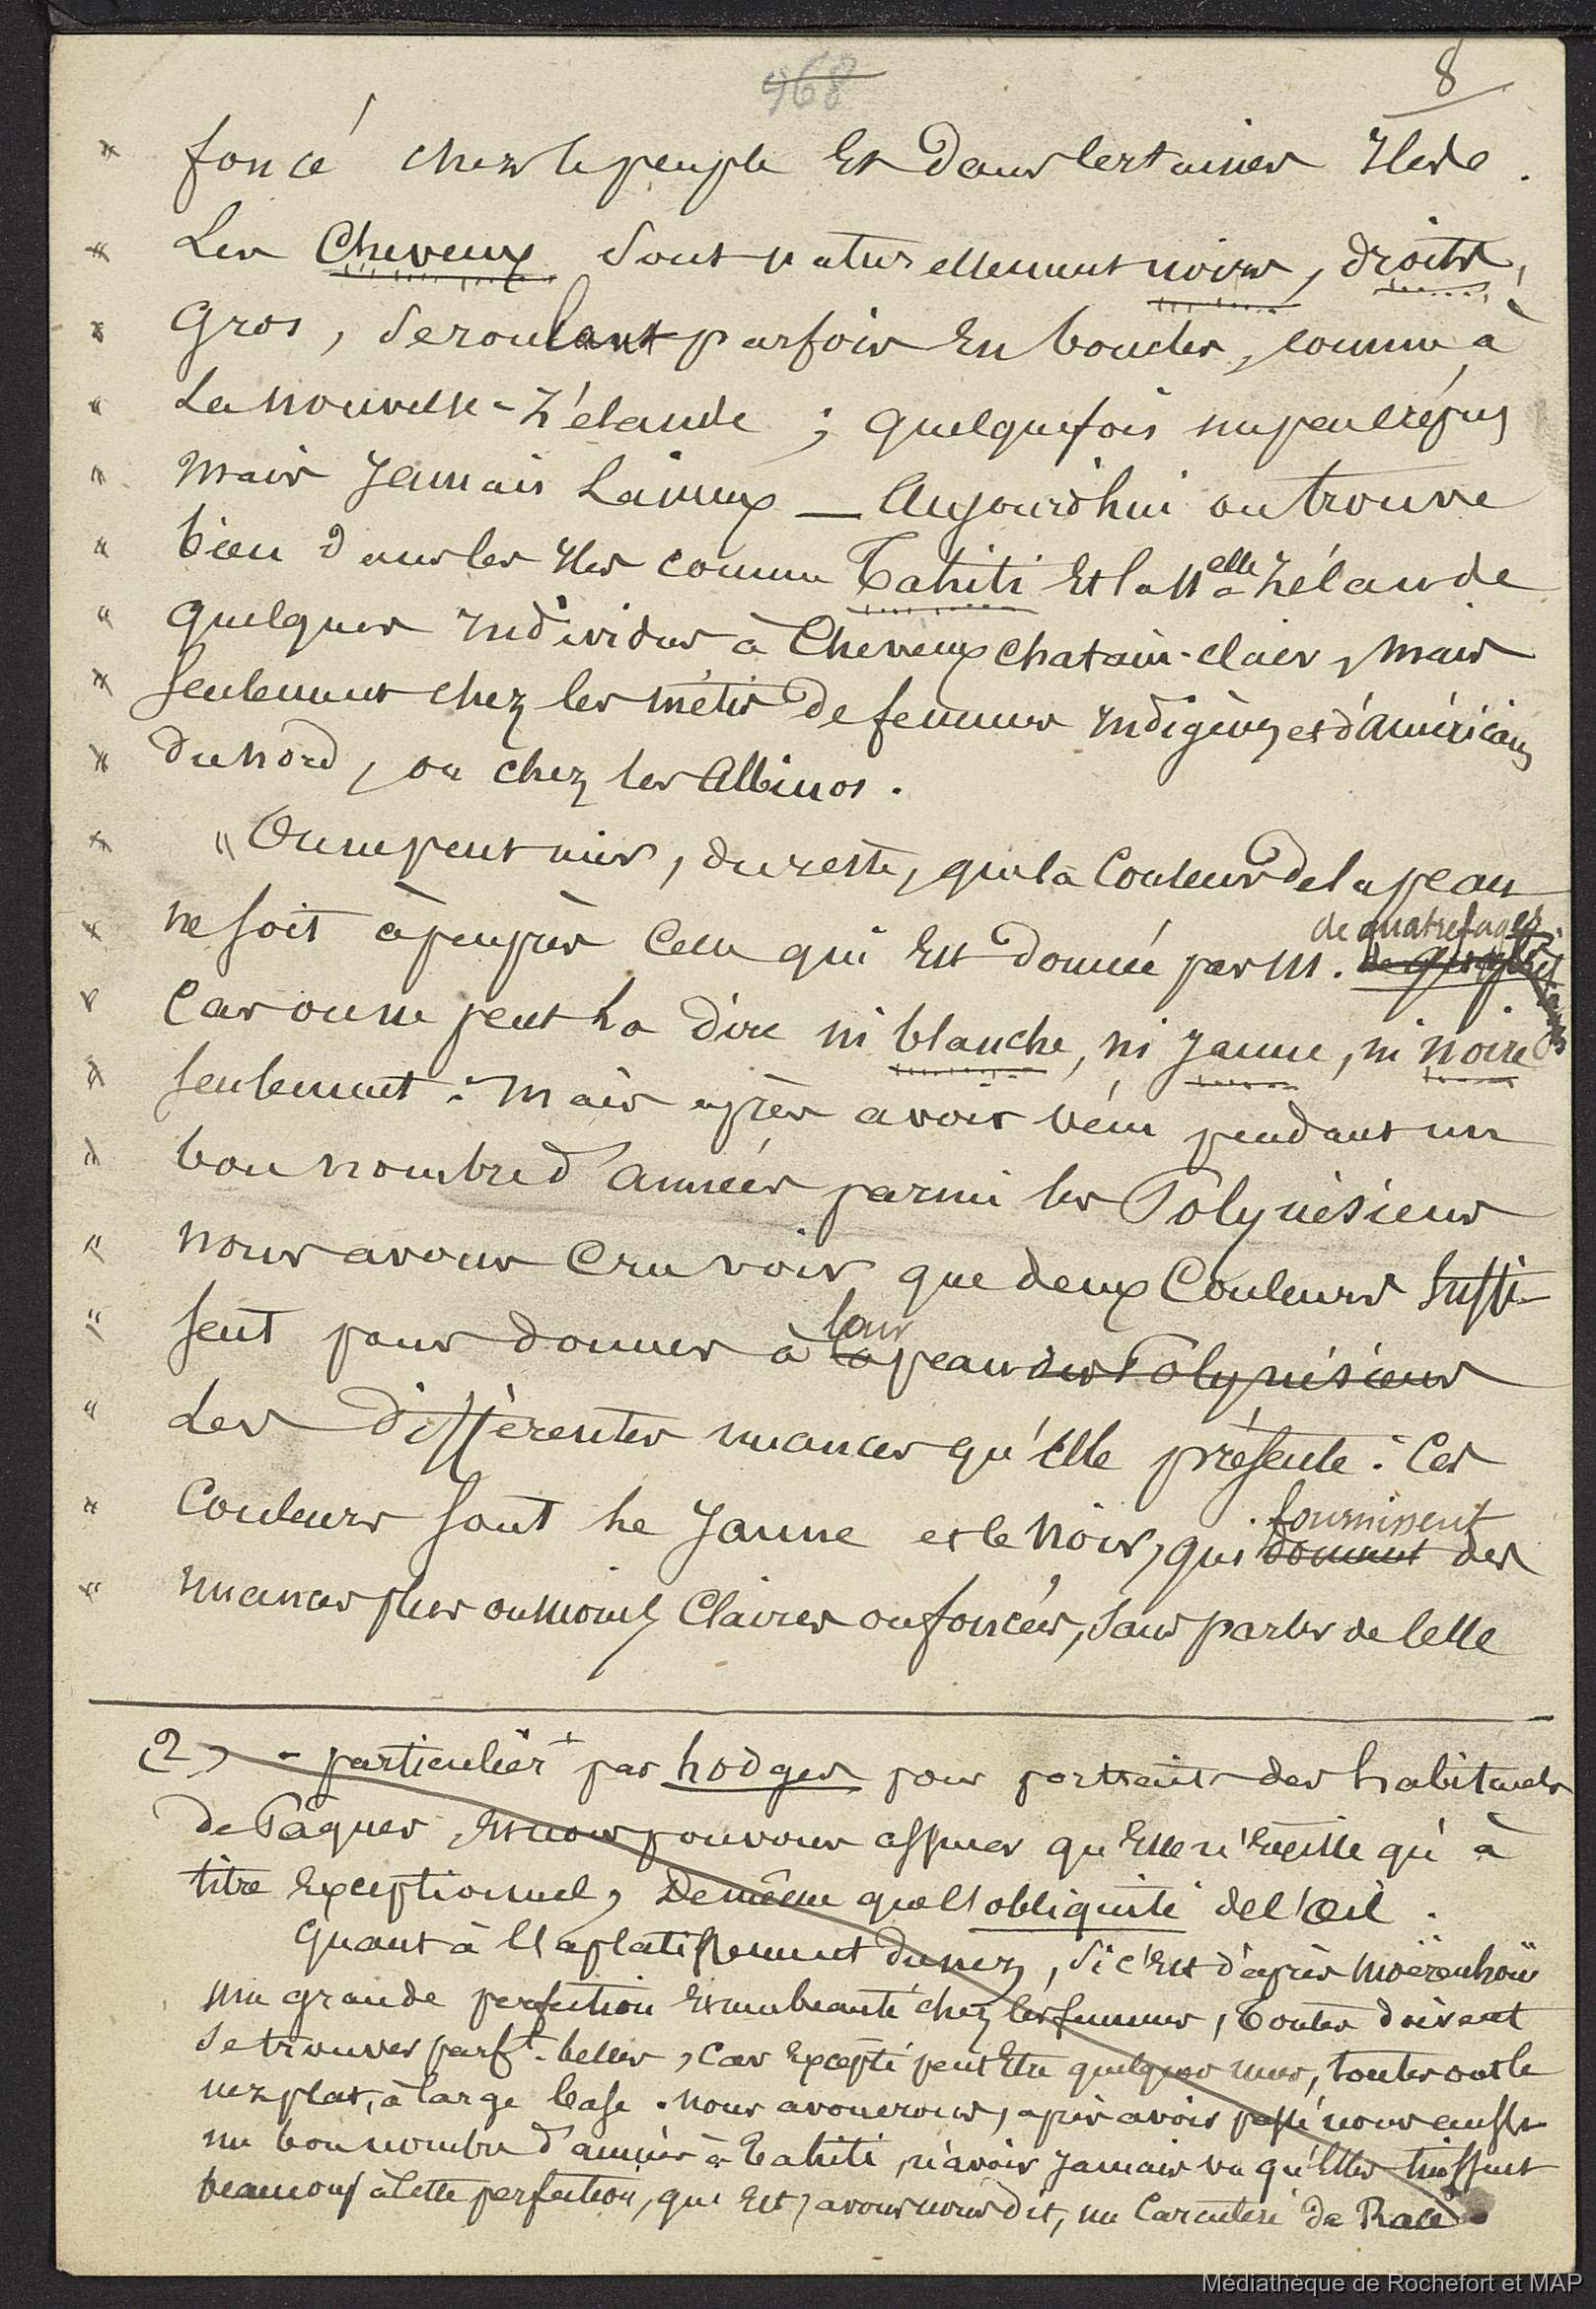 968
8
" foncé chez le peuple et dans certaines Iles.
" Les Cheveux sont naturellement noirs, droits,
" Gros, se roulant parfois en boucles, comme à
" La Nouvelle-Zélande ; quelquefois un peu crépus
" mais jamais Laineux — Aujourd'hui on trouve
" bien dans les Iles comme Tahiti et la Nelle Zélande
" quelques individus à Cheveux chatain-clair, mais
" seulement chez les métis de femmes indigènes et d'américains
" du nord, ou chez les Albinos.
" " On ne peut nier, du reste, que la Couleur de la peau
de quatrefages
" ne soit à peu près Celle qui est donnée par M.
" Car on ne peut La dire ni blanche, ni jaune, ni noire
" seulement : Mais après avoir vécu pendant un
" bon nombre d'années parmi les Polynésiens
" nous avons Cru voir que deux Couleurs suffi-
leur
" sent pour donner à la peau des Polynésiens
" Les différentes nuances qu'elle présente : Ces
fournissent
" Couleurs sont le Jaune et le Noir, qui donnent des
" nuances plus ou moins Claires ou foncées, sans parler de Celle
(2) - particulièrt par hodges pour portraits des habitants
de Pâques, et nous pouvons assurer qu'Elle n'Existe qu'à
titre Exceptionnel, De même que l'obliquité de l'Œil.
Quant à l'aplatissement du nez, si c'Est d'après Moërenhoüt
une grande perfection et une beauté chez les femmes, toutes doivent
se trouver parft. belles, Car Excepté peut Etre quelques unes, toutes ont le
nez plat, à large base. Nous avouerons, après avoir passé nous aussi
un bon nombre d'années à Tahiti, n'avoir jamais vu qu'Elles tinssent
beaucoup à Cette perfection, qui Est, avons nous dit, un Caractère de Race.
Médiathèque de Rochefort et MAP